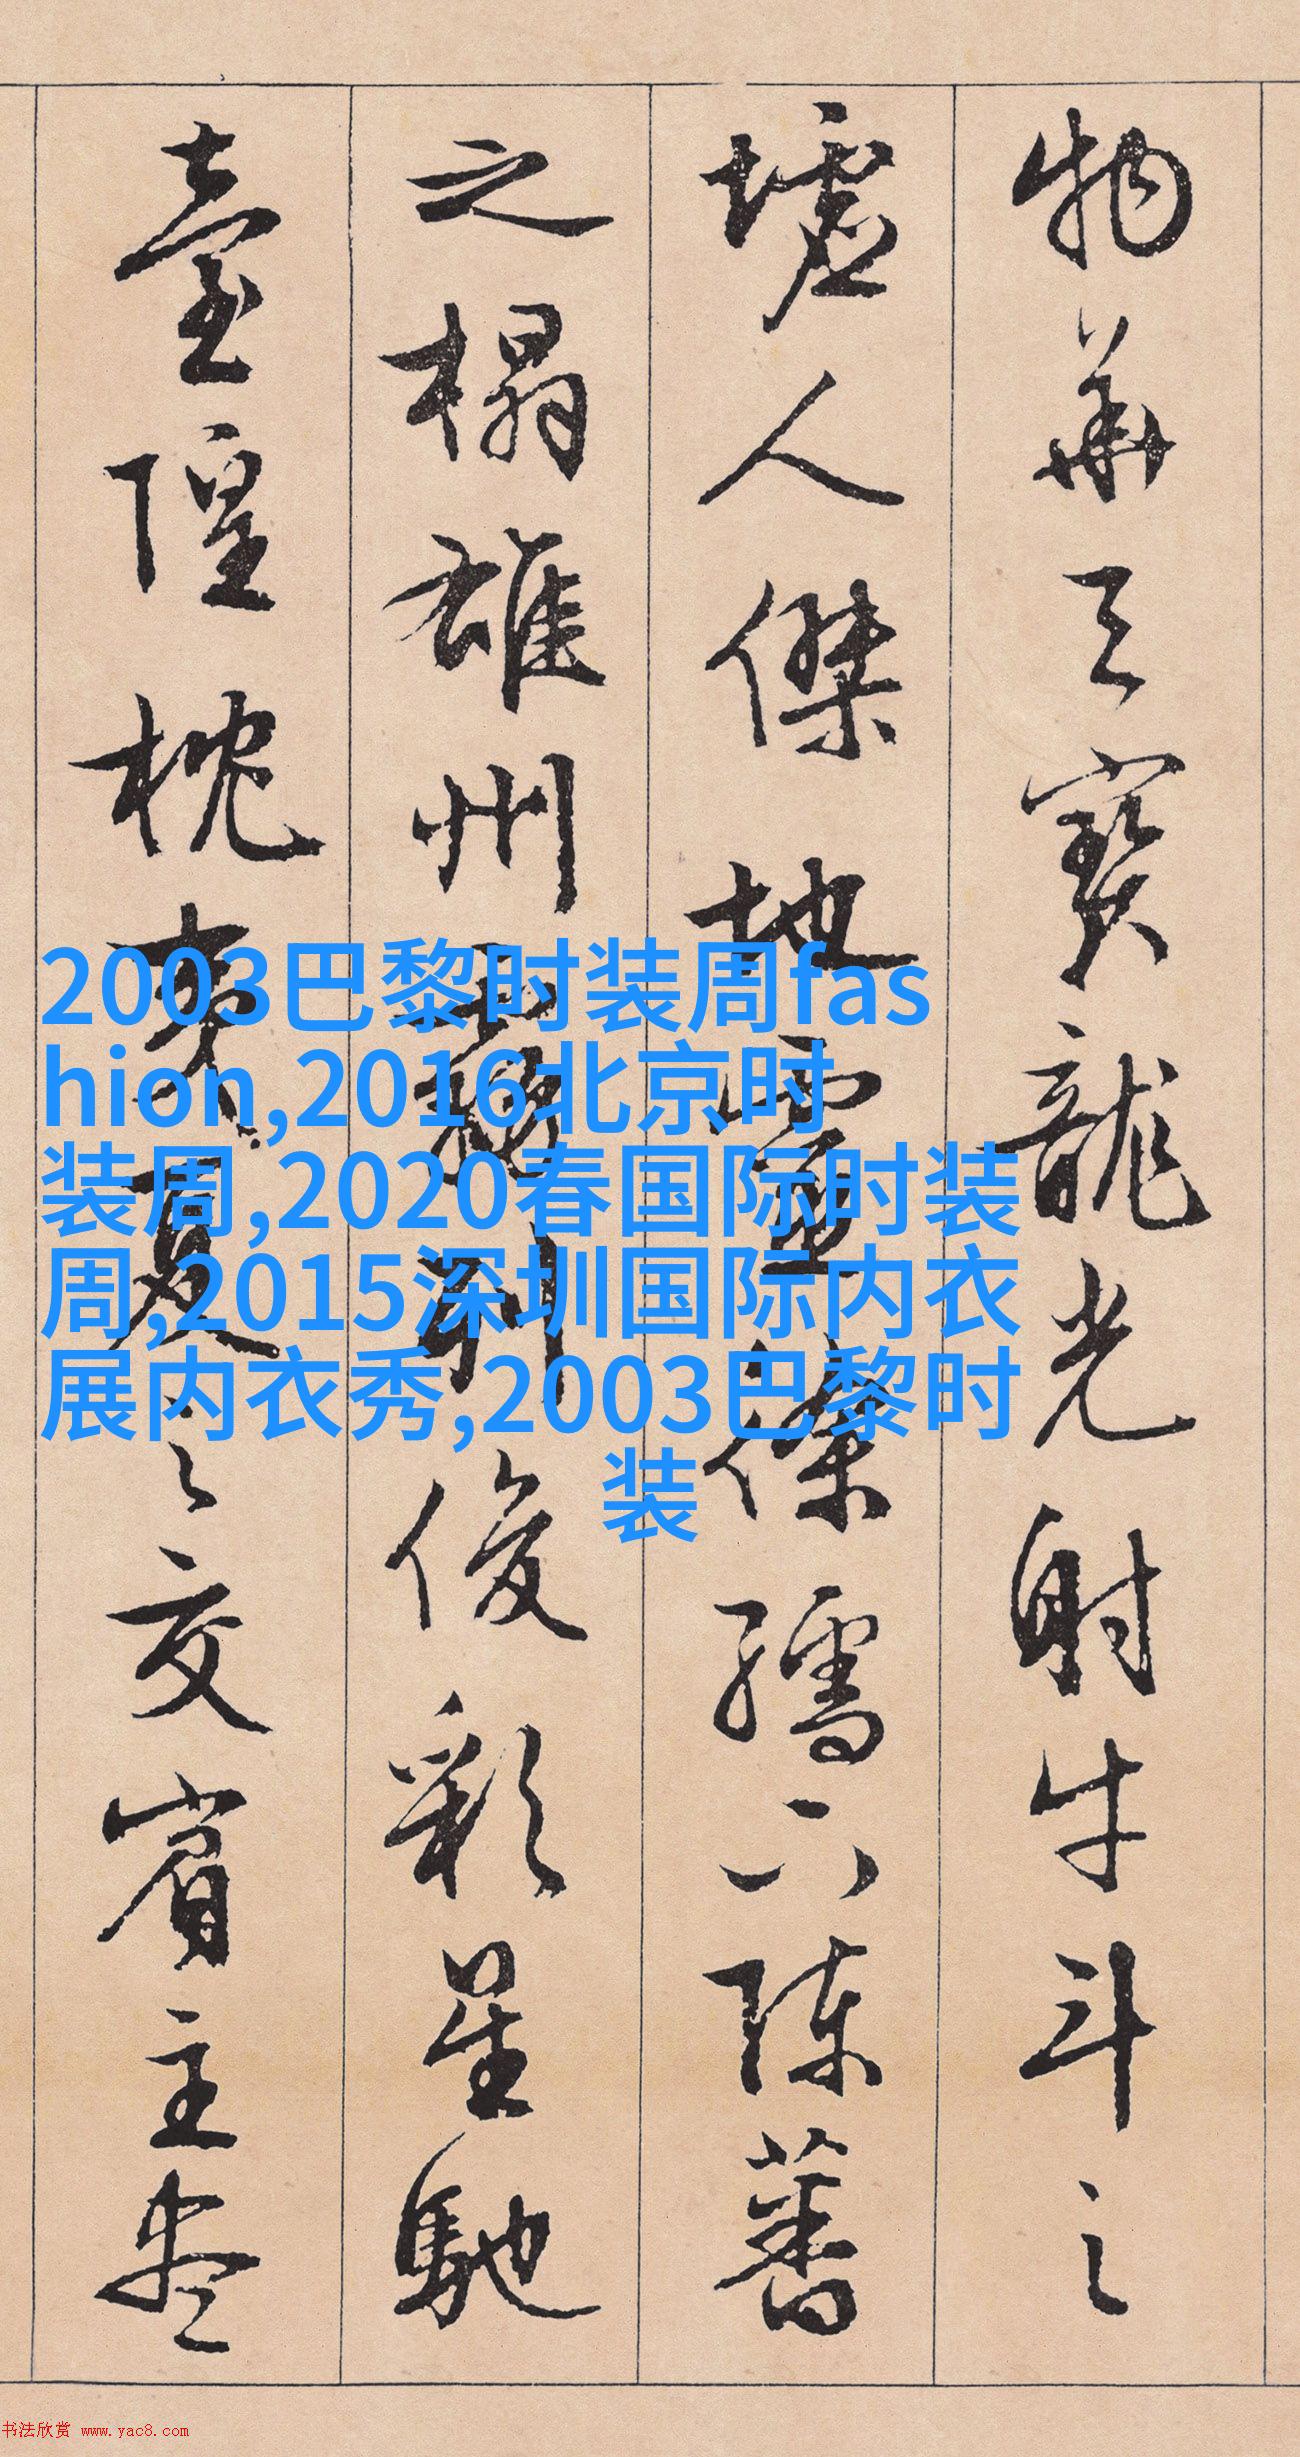 物華天寶龍光射牛斗之
墟人傑地靈徐孺下陳蕃
之榻雄州霧列俊彩星馳
臺隍枕夷夏之交賓主盡
2003巴黎时装周fas
hion,2016北京时
装周,2020春国际时装
周,2015深圳国际内衣
展内衣秀,2003巴黎时
装
书法欣赏 www.yac8.com